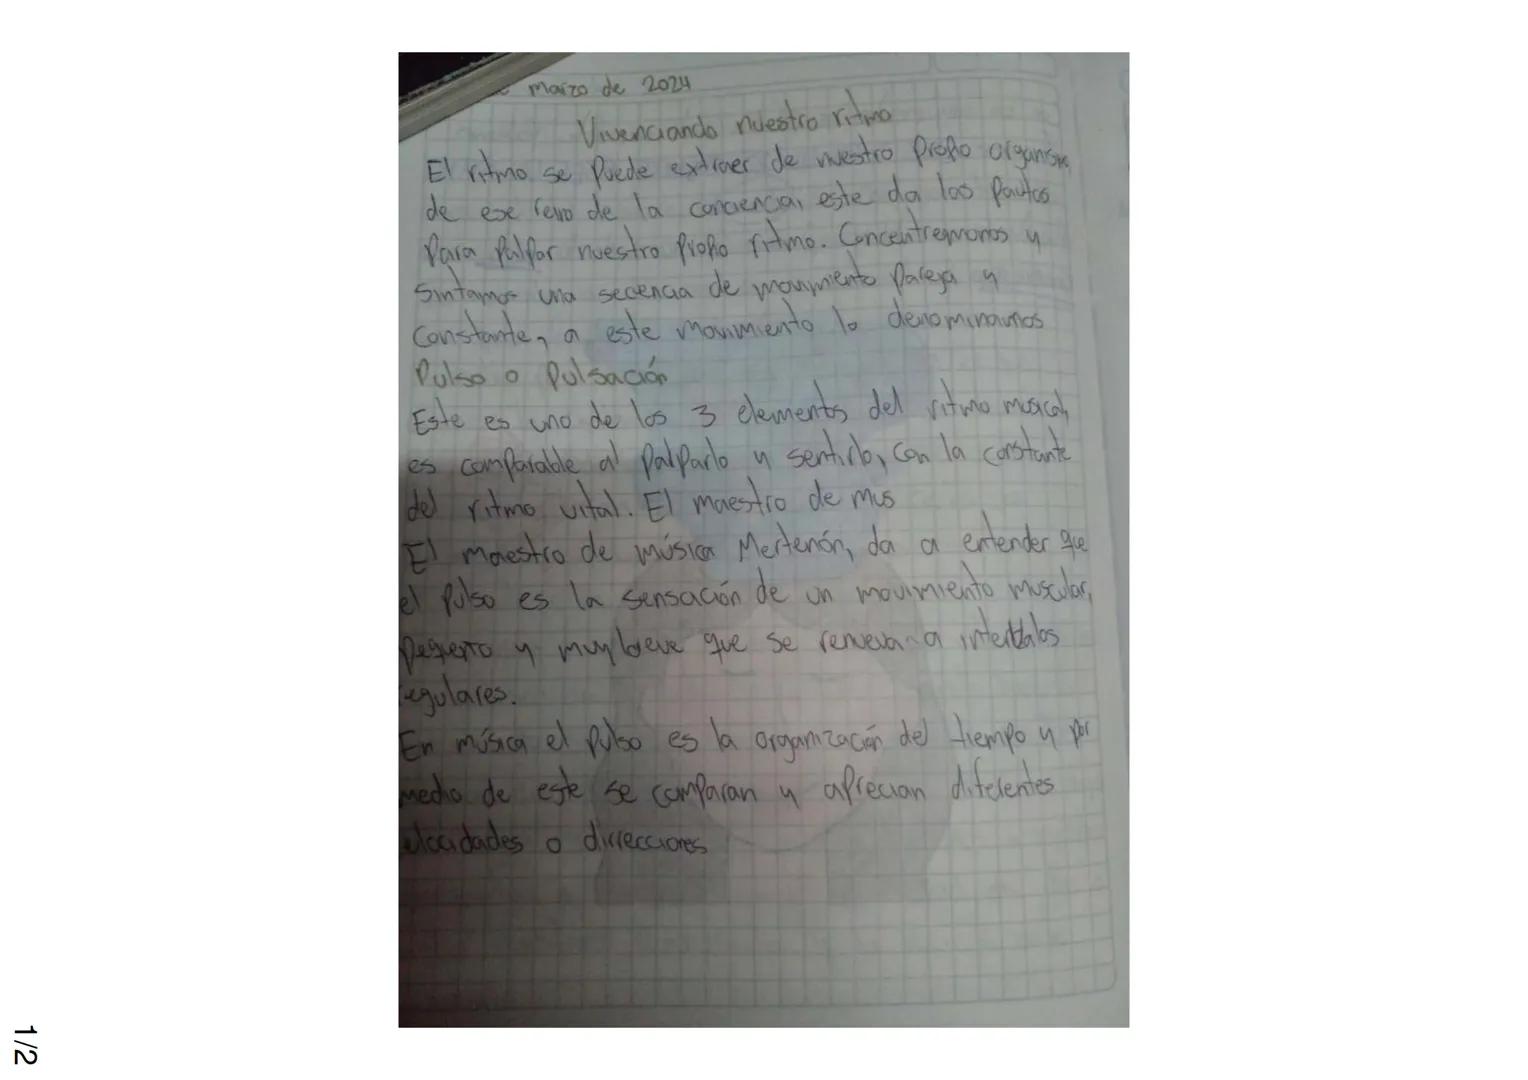 marzo de 2024
Vivenciando nuestro ritmo
El ritmo se puede extraer de nuestro propio organism
de ese de la conciencia, este da las pautas
para palpar nuestro propio ritmo. Concentremonos y
sintamos una secencia de movimiento pareja y
constante, a este movimiento lo denominamos
Pulso o Pulsación
Este es uno de los 3 elementos del ritmo musical,
es comparable al palparlo y sentirlo, con la constante
del ritmo vital. El maestro de mus
El maestro de música Mertenón, da a entender que
el pulso es la sensación de un movimiento muscular,
pequeño y muy breve que se renueva a
regulares.
En música el pulso es la organización del tiempo y por
medio de este se comparan y aprecian diferentes
elocidades o dirrecciones
1/2